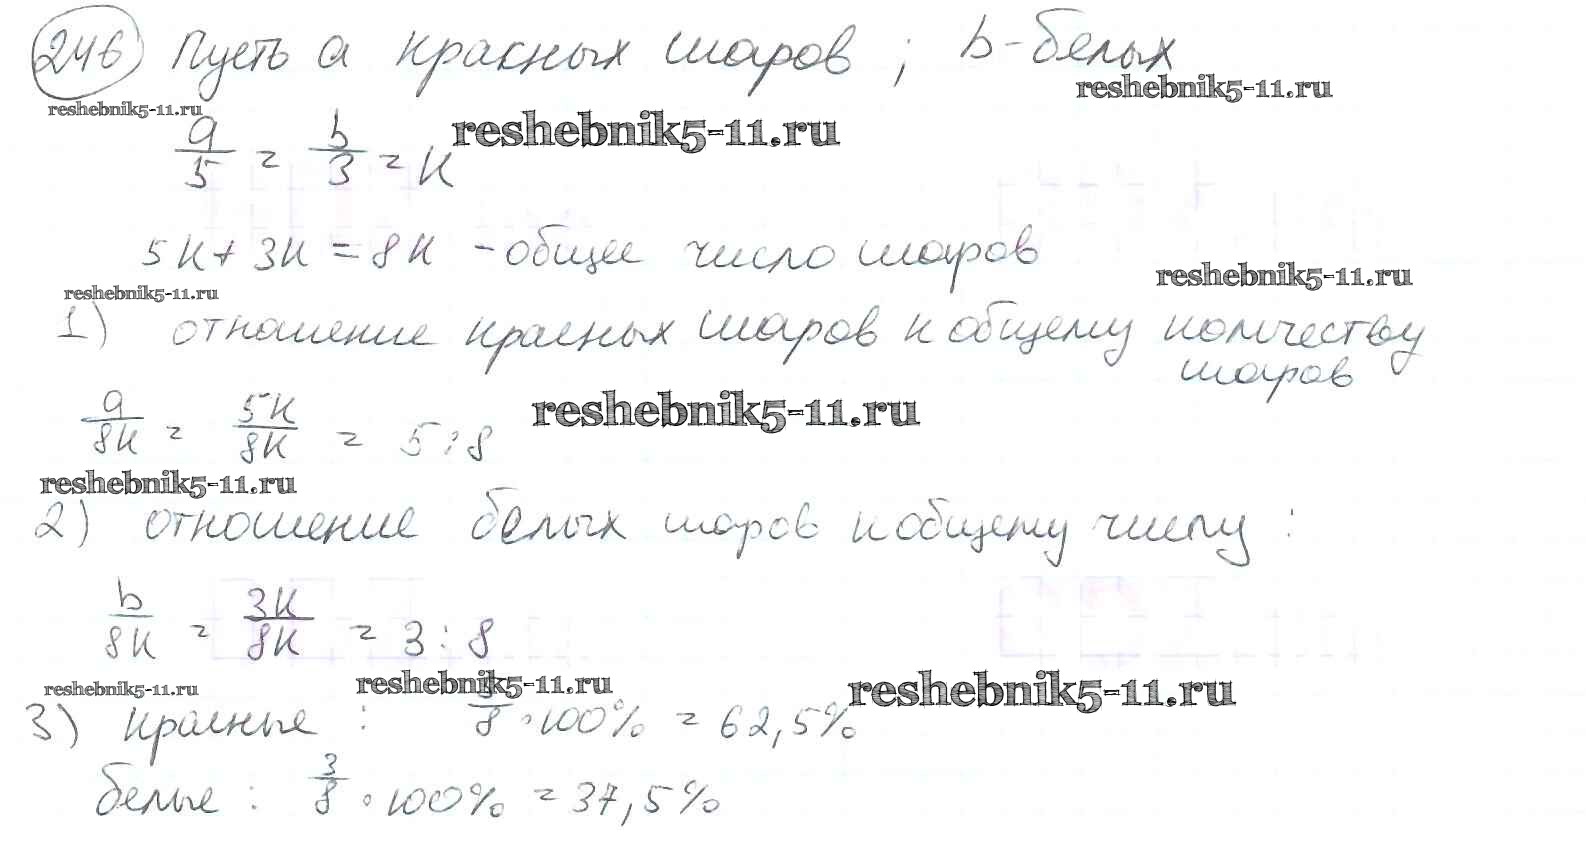 246 Пусть a красных шаров ; b - белых
reshebnik5-11.ru
reshebnik5-11.ru
a/5 = b/3 = k
reshebnik5-11.ru
5k + 3k = 8k - общее число шаров
reshebnik5-11.ru
reshebnik5-11.ru
1) отношение красных шаров к общему количеству
шаров
a/8k = 5k/8k = 5 : 8
reshebnik5-11.ru
reshebnik5-11.ru
2) отношение белых шаров к общему числу :
b/8k = 3k/8k = 3 : 8
reshebnik5-11.ru
reshebnik5-11.ru
reshebnik5-11.ru
3) красные : 5/8 · 100% = 62,5%
белые : 3/8 · 100% = 37,5%